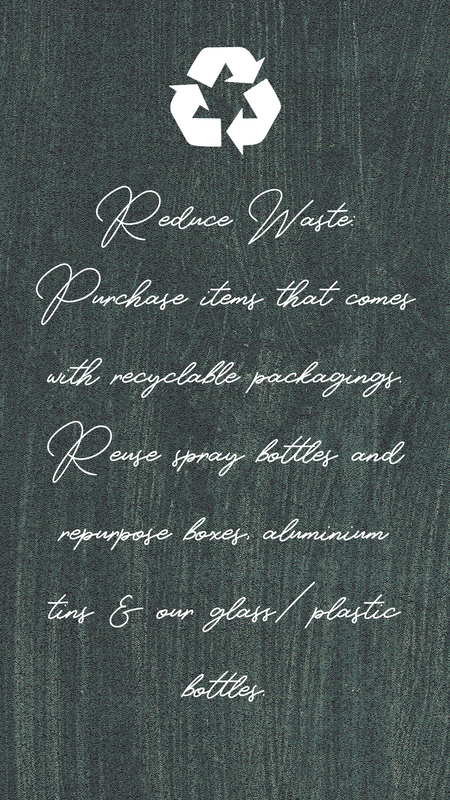 Reduce Waste:
Purchase items that comes
with recyclable packagings.
Reuse spray bottles and
repurpose boxes, aluminium
tins & our glass/ plastic
bottles.